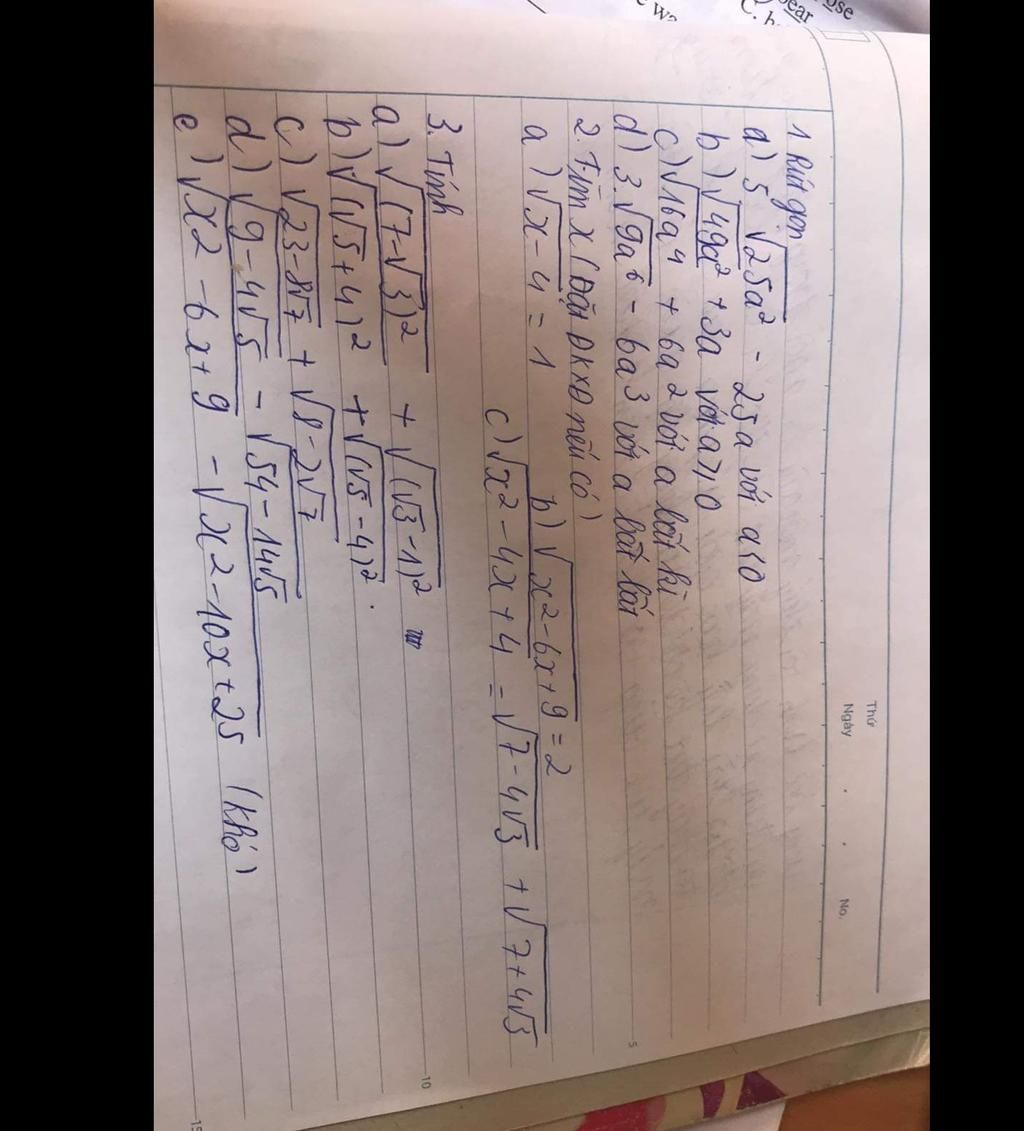 ose
ear
C. h
Thứ
Ngày
No.
1 Rút gọn
a) 5 √25a² - 25a với a<0
b) √49a² + 3a với a⩾0
c) √16a⁴ + 6a² với a bất kì
d) 3.√9a⁶ - 6a³ với a bất
5
2. Tìm x (Đặt ĐKXĐ nếu có)
a) √x-4 = 1
b) √x²-6x+9 = 2
c) √x²-4x+4 = √7-4√3 + √7+4√3
3. Tính
10
a) √(7-√3)² + √(√3-1)² =
b) √(√5+4)² + √(√5-4)².
c) √23-8√7 + √8-2√7
d) √9-4√5 - √54-14√5
e) √x2-6x+9 - √x2-10x+25 (khó)
15